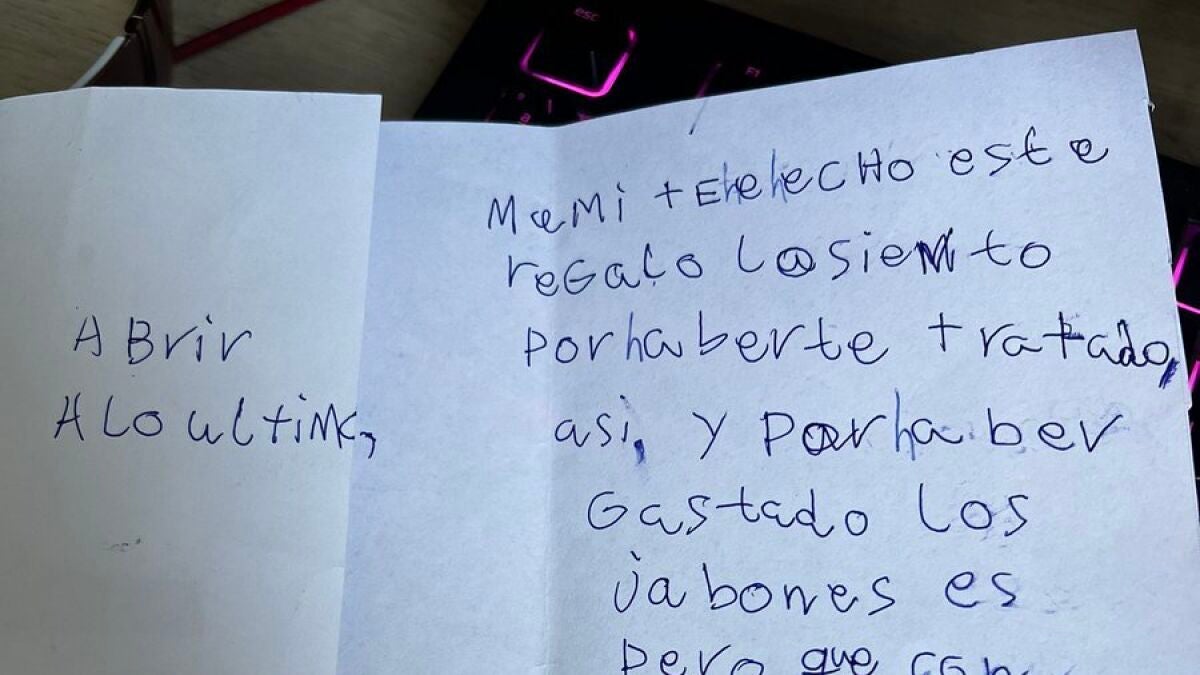 esc
F1
ABrir
ALo ultimo,
MaMi tEhehecHo este
reGalo LosieNto
Porhaberte tratado,
asi, y Porhaber
Gastado los
jabones es
pero que con